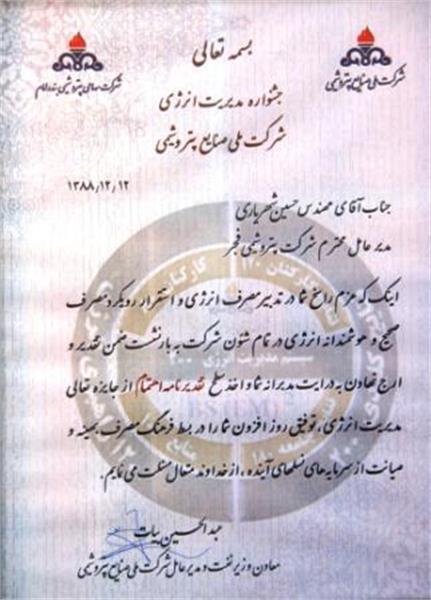 بسمه تعالی
شرکت ملی صنایع پتروشیمی
شرکت سهامی پتروشیمی بندر امام
جشنواره مدیریت انرژی
شرکت ملی صنایع پتروشیمی
۱۳۸۸,۱۲,۱۲
جناب آقای مهندس حسین شهریاری
مدیر عامل محترم شرکت پتروشیمی فجر
اینک که عزم راسخ شما در تدبیر مصرف انرژی و استقرار رویکرد مصرف
صحیح و هوشمندانه انرژی در تمام شئون شرکت به بار نشست ضمن تقدیر و
ارج نهادن به درایت مدبرانه شما و اخذ سطح تقدیرنامه اهتمام از جایزه تعالی
مدیریت انرژی، توفیق روز افزون شما را در بسط فرهنگ مصرف بهینه و
صیانت از سرمایه های نسلهای آینده، از خداوند متعال مسئلت می نمایم.
عبدالحسین بیات
معاون وزیر نفت و مدیر عامل شرکت ملی صنایع پتروشیمی